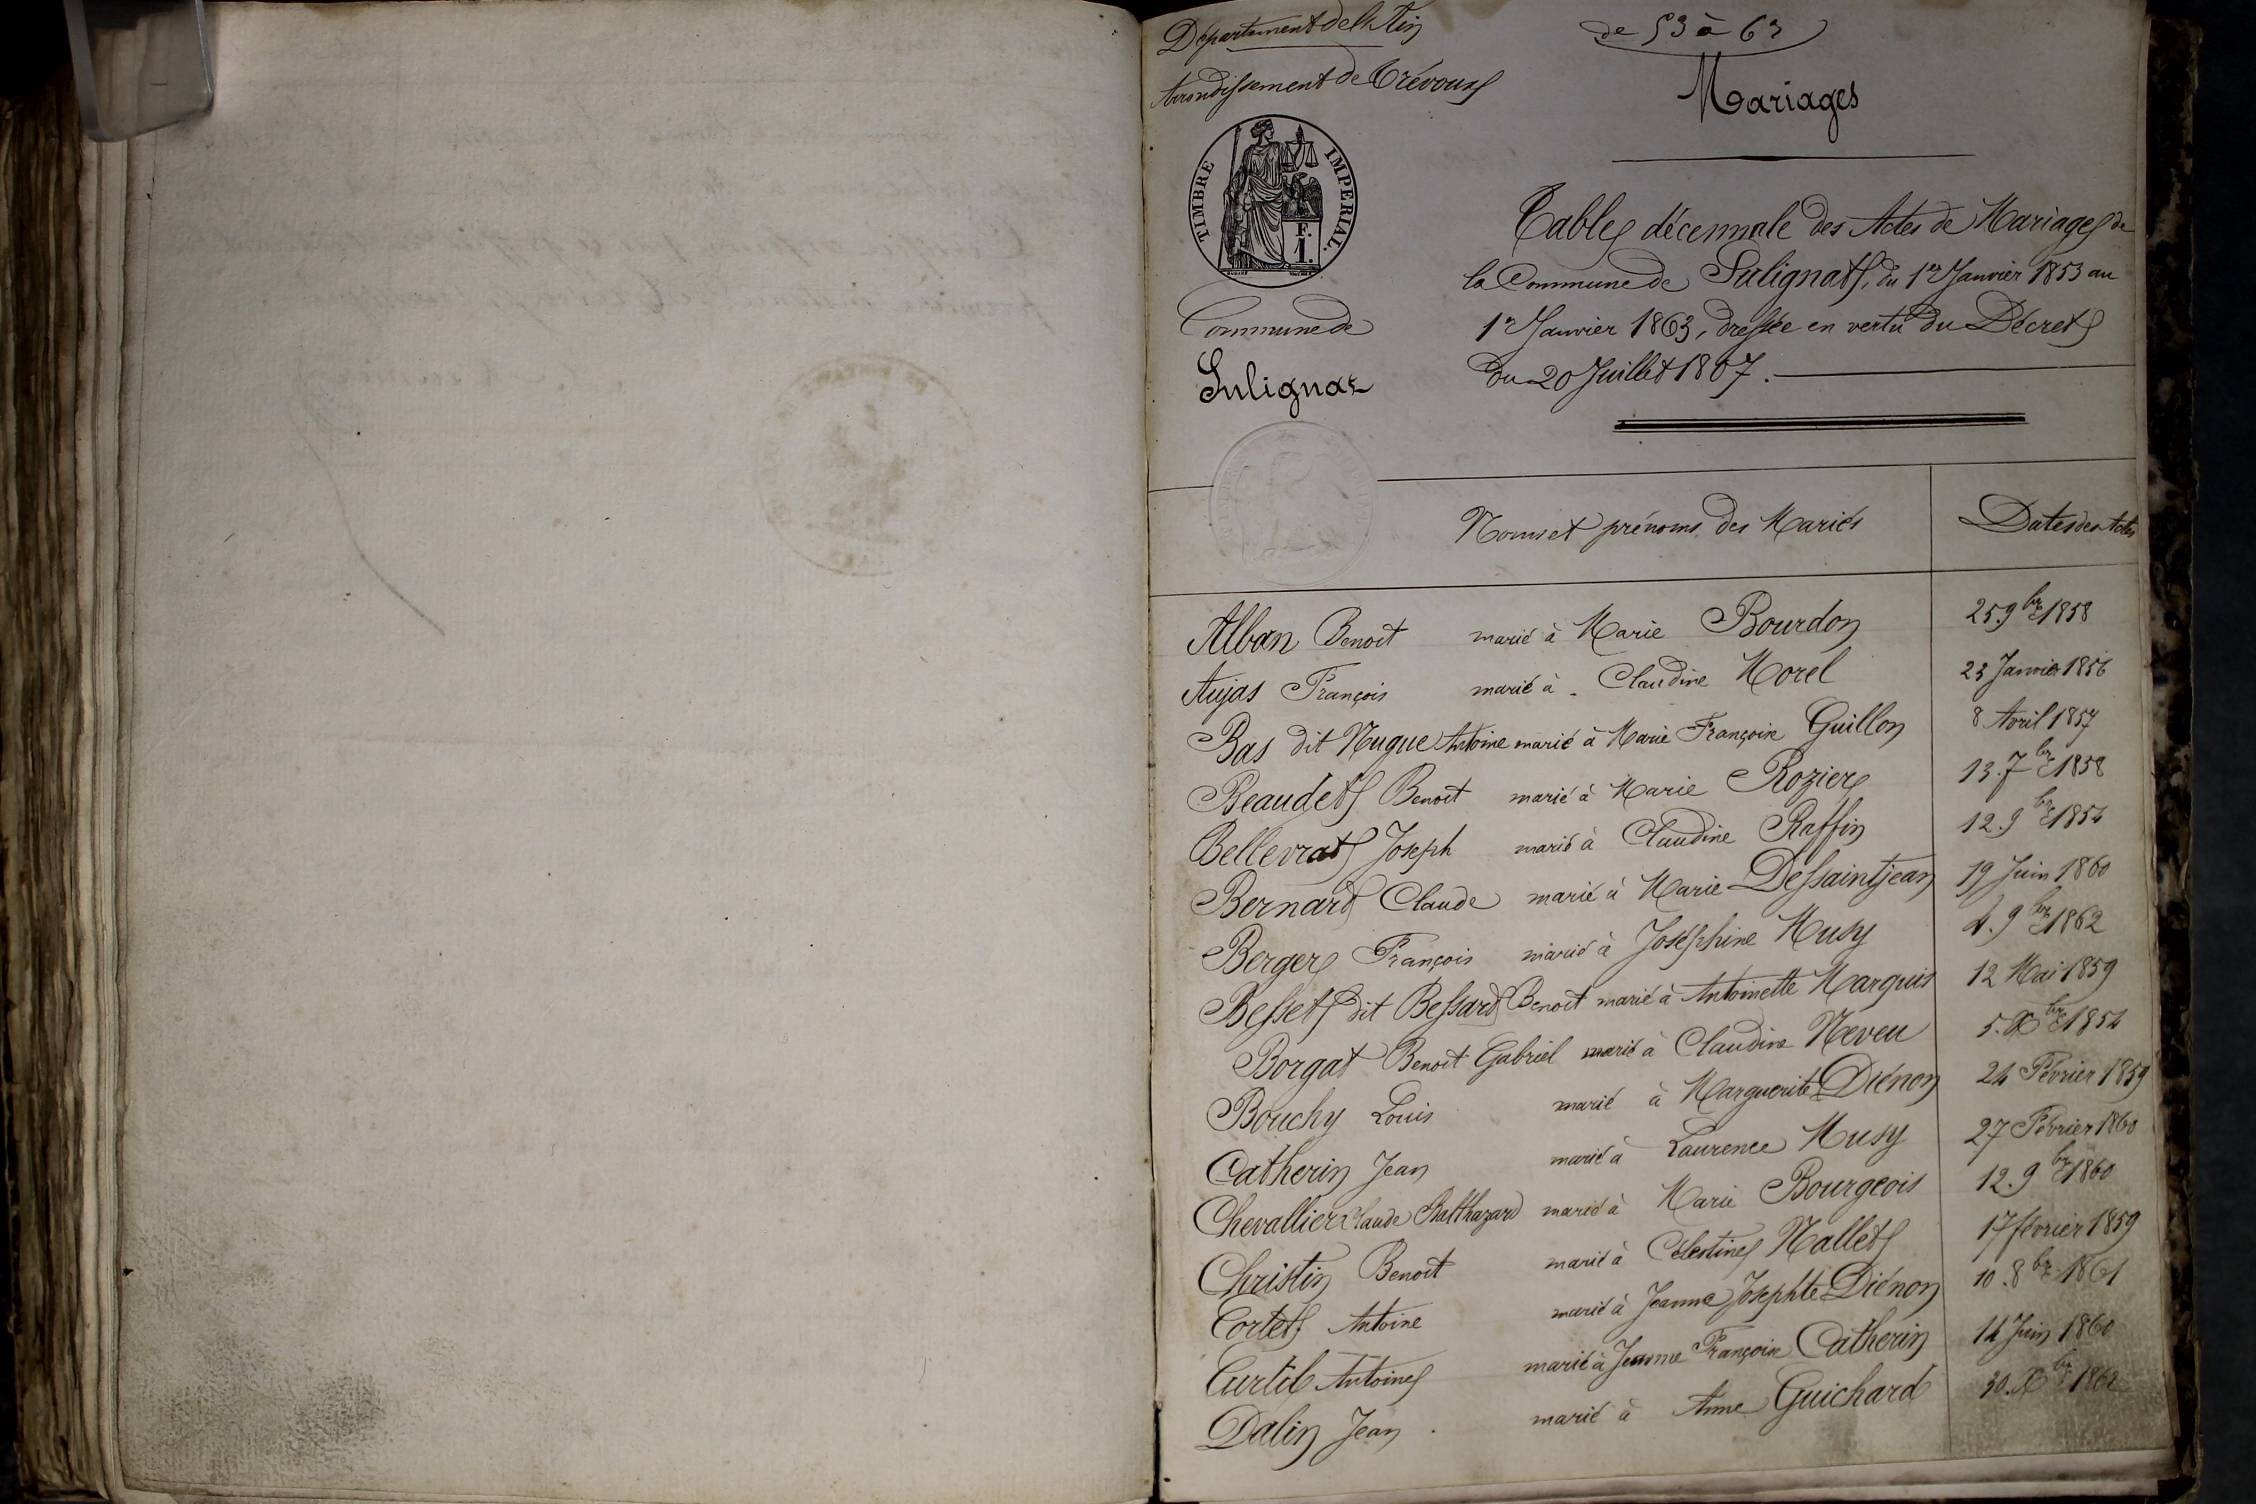 Département de l'Ain
de 53 à 63
Arrondissement de Trévoux
Mariages
TIMBRE IMPERIAL.
F.
1.
Commune de
Sulignat
Tables décennale des Actes de Mariages de
la Commune de Sulignat, du 1er Janvier 1853 au
1er Janvier 1863, dressée en vertu du Décret
du 20 Juillet 1807.
Noms et prénoms des Mariés Dates des Actes
Alban Benoit marié à Marie Bourdon 25 9bre 1858
Aujas François marié à Claudine Morel 23 Janvier 1856
Bas dit Nugue Antoine marié à Marie Françoise Guillon 8 Avril 1857
Beaudet Benoit marié à Marie Rozier 13. 7bre 1858
Bellevrat Joseph marié à Claudine Raffin 12. 9bre 1854
Bernard Claude marié à Marie Dessaintjean 19 Juin 1860
Berger François marié à Joséphine Musy 4. 9bre 1862
Besset dit Bessard Benoit marié à Antoinette Marguis 12 Mai 1859
Borgat Benoit Gabriel marié à Claudine Neveu 5. Xbre 1854
Bouchy Louis marié à Marguerite Diénon 24 Février 1859
Catherin Jean marié à Laurence Musy 27 Février 1860
Chevallier Claude Balthazard marié à Marie Bourgeois 12. 9bre 1860
Christin Benoit marié à Célestine Nallet 17 février 1859
Cortet Antoine marié à Jeanne Josephte Diénon 10. 8bre 1861
Curtil Antoine marié à Jeanne Françoise Catherin 14 Juin 1860
Dalin Jean marié à Anne Guichard 30. Xbre 1862